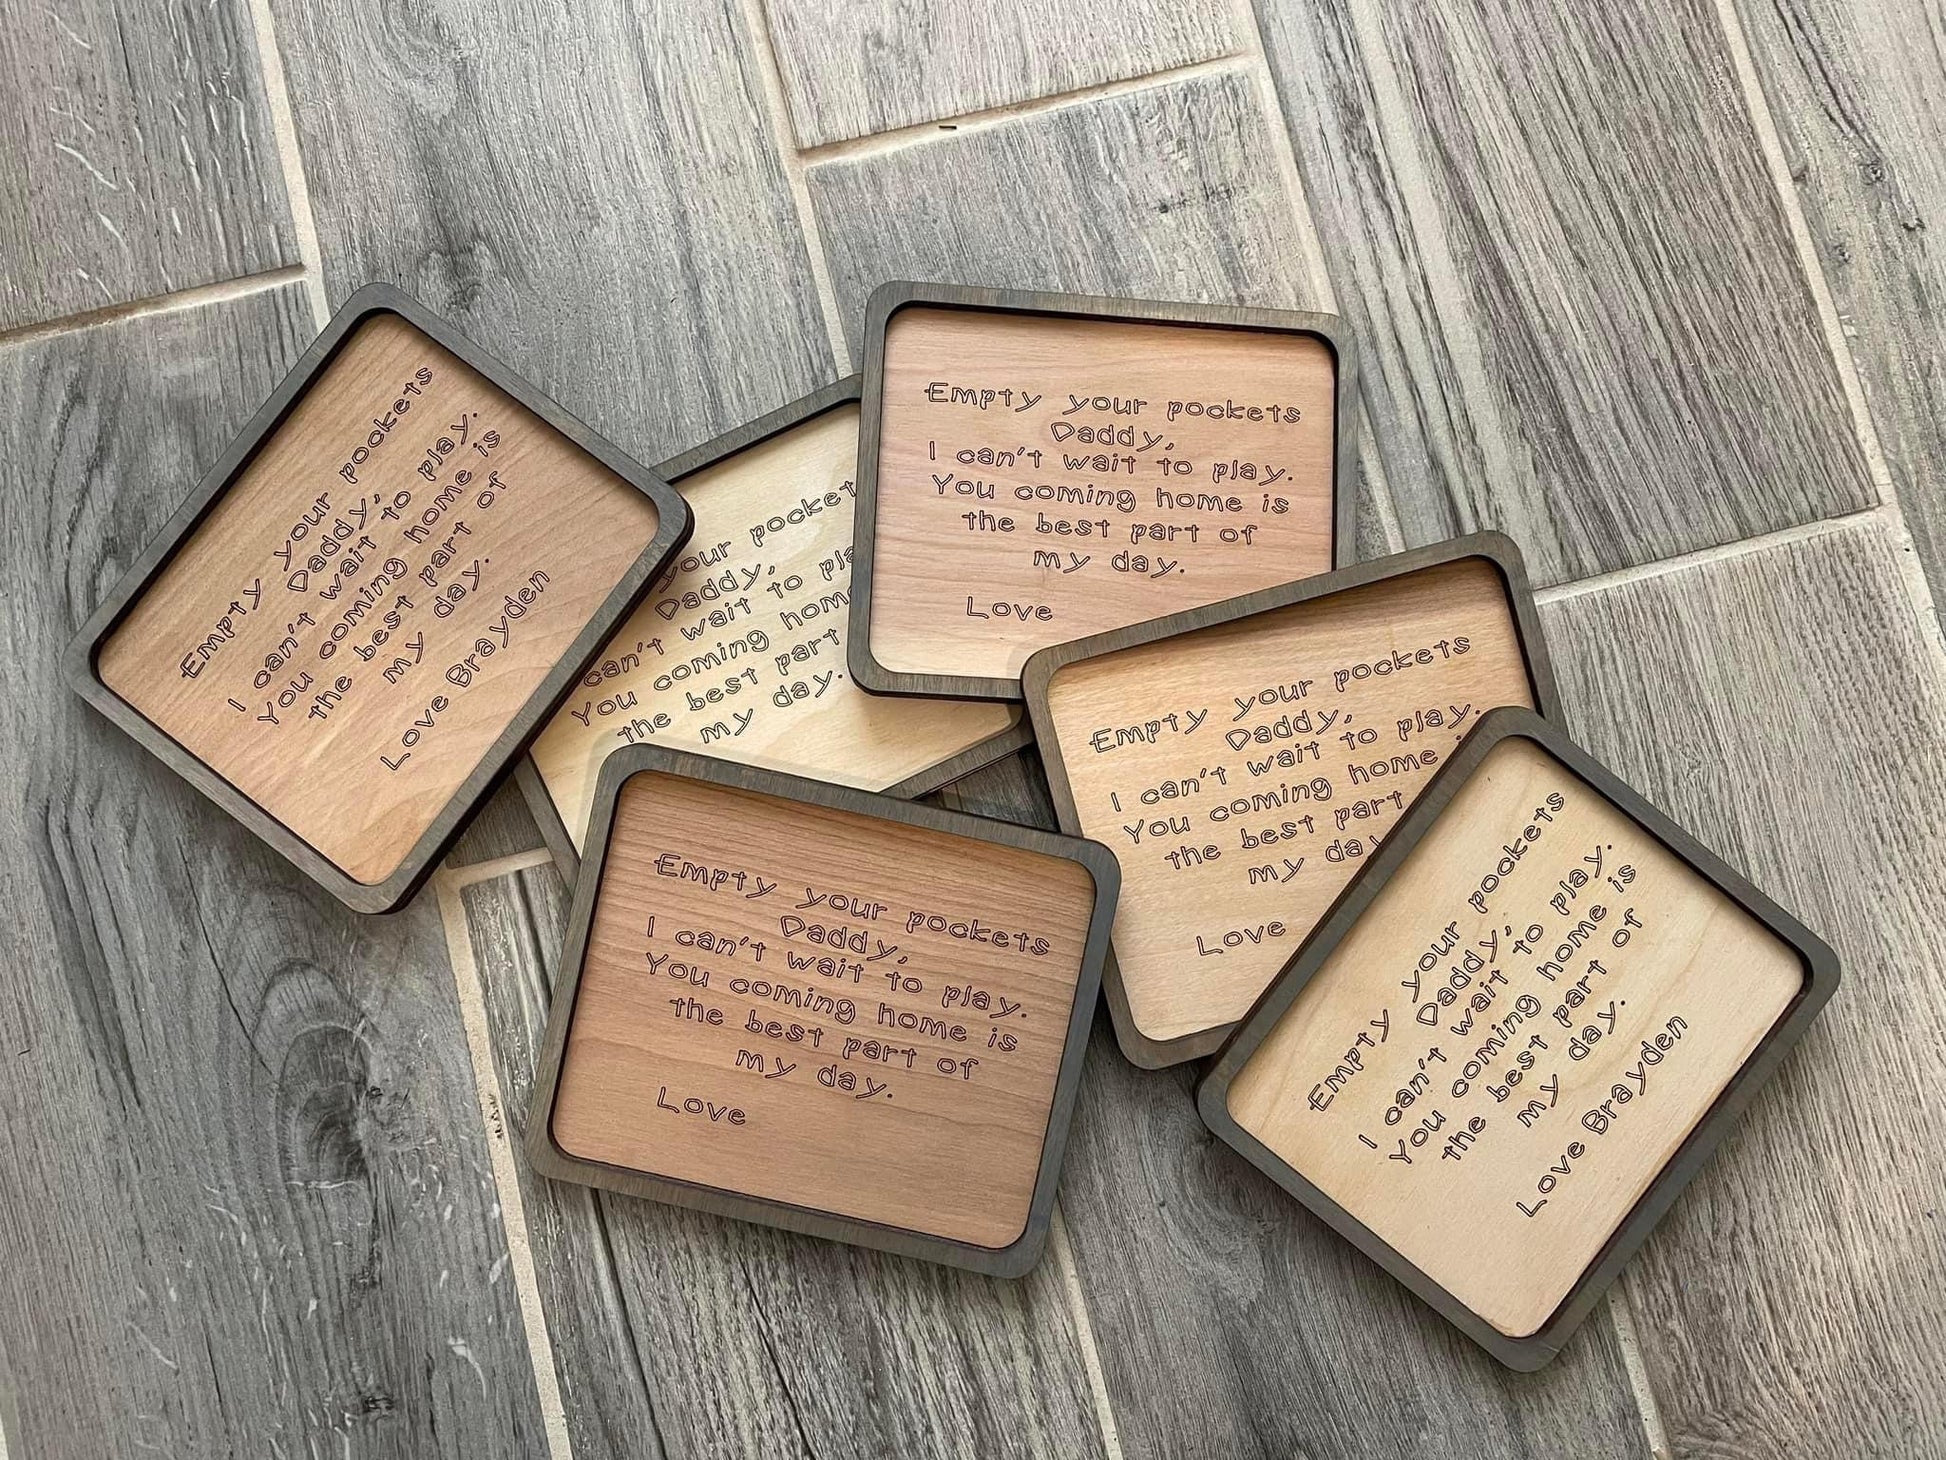 Empty your pockets
Daddy,
I can't wait to play.
You coming home is
the best part of
my day.
Love Brayden
your pocket
Daddy,
can't wait to pla
You coming hom
the best part
my day.
Empty your pockets
Daddy,
I can't wait to play.
You coming home is
the best part of
my day.
Love
Empty your pockets
Daddy,
I can't wait to play.
You coming home
the best part
my day
Love
Empty your pockets
Daddy,
I can't wait to play.
You coming home is
the best part of
my day.
Love
Empty your pockets
Daddy,
I can't wait to play.
You coming home is
the best part of
my day.
Love Brayden